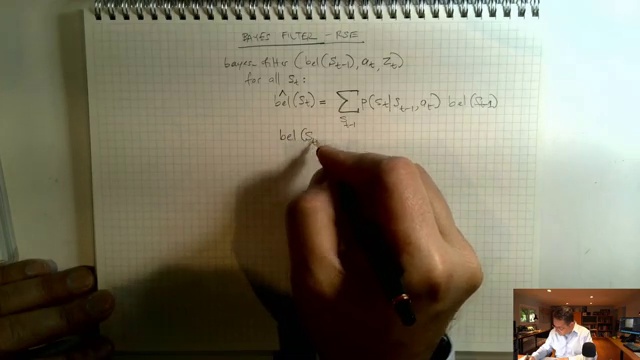 BAYES FILTER - RSE
bayes-filter (bel(s_{t-1}), a_t, z_t)
for all s_t:
\hat{bel}(s_t) = \sum_{s_{t-1}} p(s_t | s_{t-1}, a_t) bel(s_{t-1})
bel(s_t